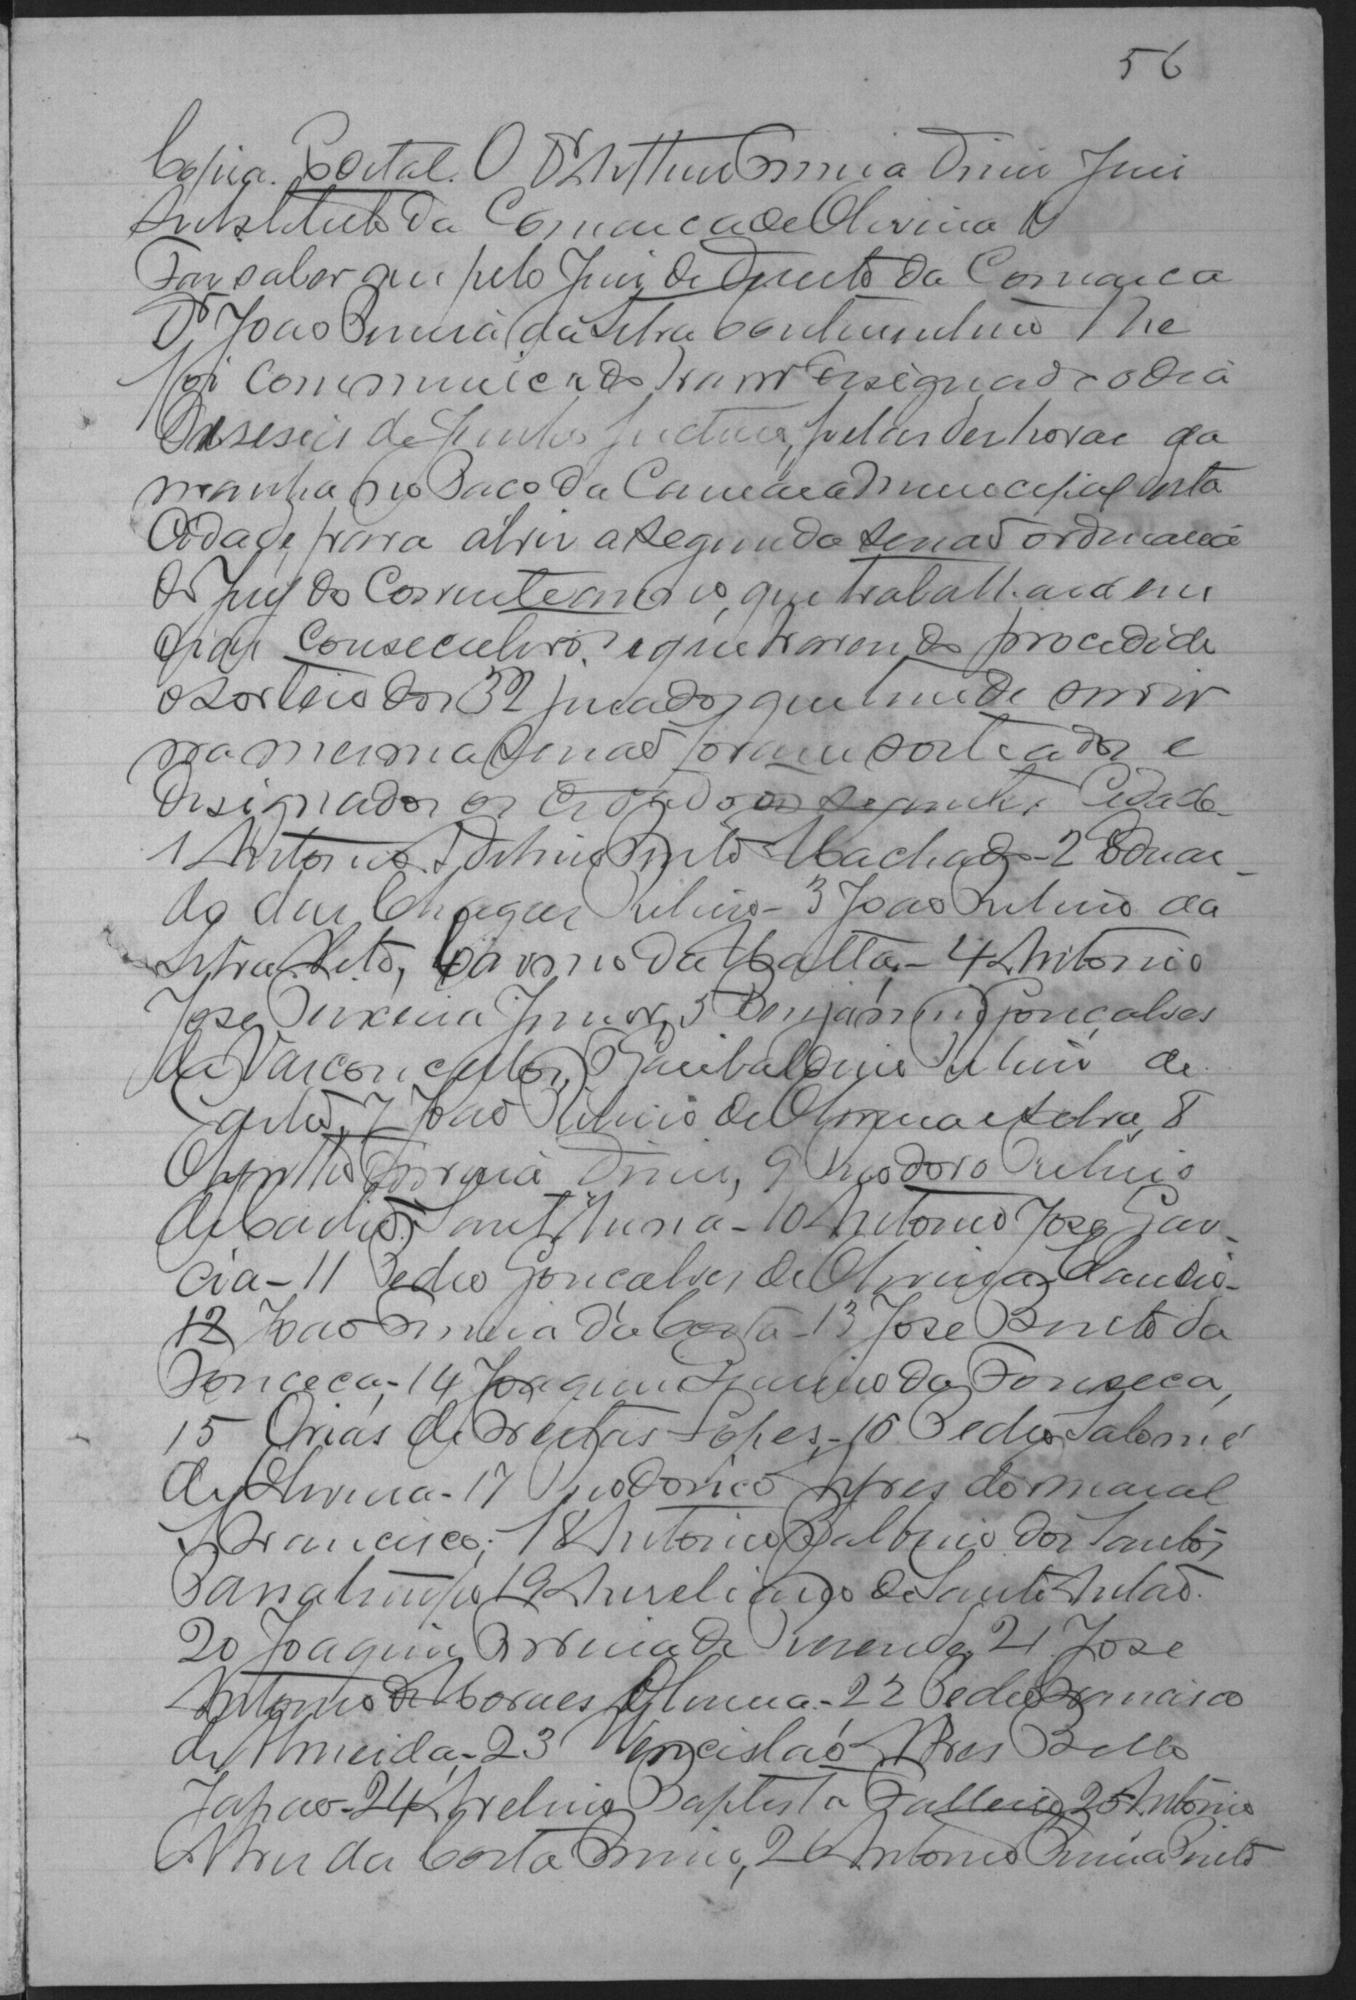 56
Copia. Edital. O Dr Arthur Diniz Juiz
Substituto da Comarca de Oliveira
Faz saber que pelo Juiz de Direito da Comarca
Dr João Pereira da Silva Continentino lhe
foi communicado haver designado o dia
deseseis de Junho pelas dez horas da
manha no Paco da Camara Municipal desta
Cidade, para abrir a segunda sessaõ ordinaria
do Jury do Corrente anno, que trabalhará em
dias consecutivos. e que havendo procedido
o sorteio dos 32 jurados que tem de servir
na mesma sessaõ foram sorteados e
designados os Cidadãos seguintes Cidade
1 Antonio Pinto Machado - 2 Eduar-
do das Chagas Ribeiro - 3 João Ribeiro da
Silva Netto, Carmo da Matta, - 4 Antonio
Jose Teixeira Junior, 5 Benjamim Gonçalves
de Vasconcellos, 6 Garibaldino Ribeiro de
7 João Ribeiro de Oliveira e Silva, 8
Diniz, 9 Theodoro Ribeiro
de Sant'Anna - 10 Antonio José Gar-
cia - 11 Pedro Gonçalves de Oliveira, Claudio -
12 João Pereira da Costa - 13 Jose Pinto da
Fonceca, - 14 Joaquim da Fonseca,
15 Orias de Freitas Lopes, - 16 Pedro Salomé
de Oliveira - 17 Theodorico do Amaral
S Francisco, 18 Antonio Balbino dos Santos
Passatempo 19 Aureliano de Santo Antaõ.
20 Joaquim de Resende, 21 Jose
Antonio de Moraes Oliveira - 22 Pedro Francisco
de Almeida, - 23 Wencislaó Alves Bello
Japao - 24 Avelino Baptista 25 Antonio
Alves da Costa 26 Antonio Pinto